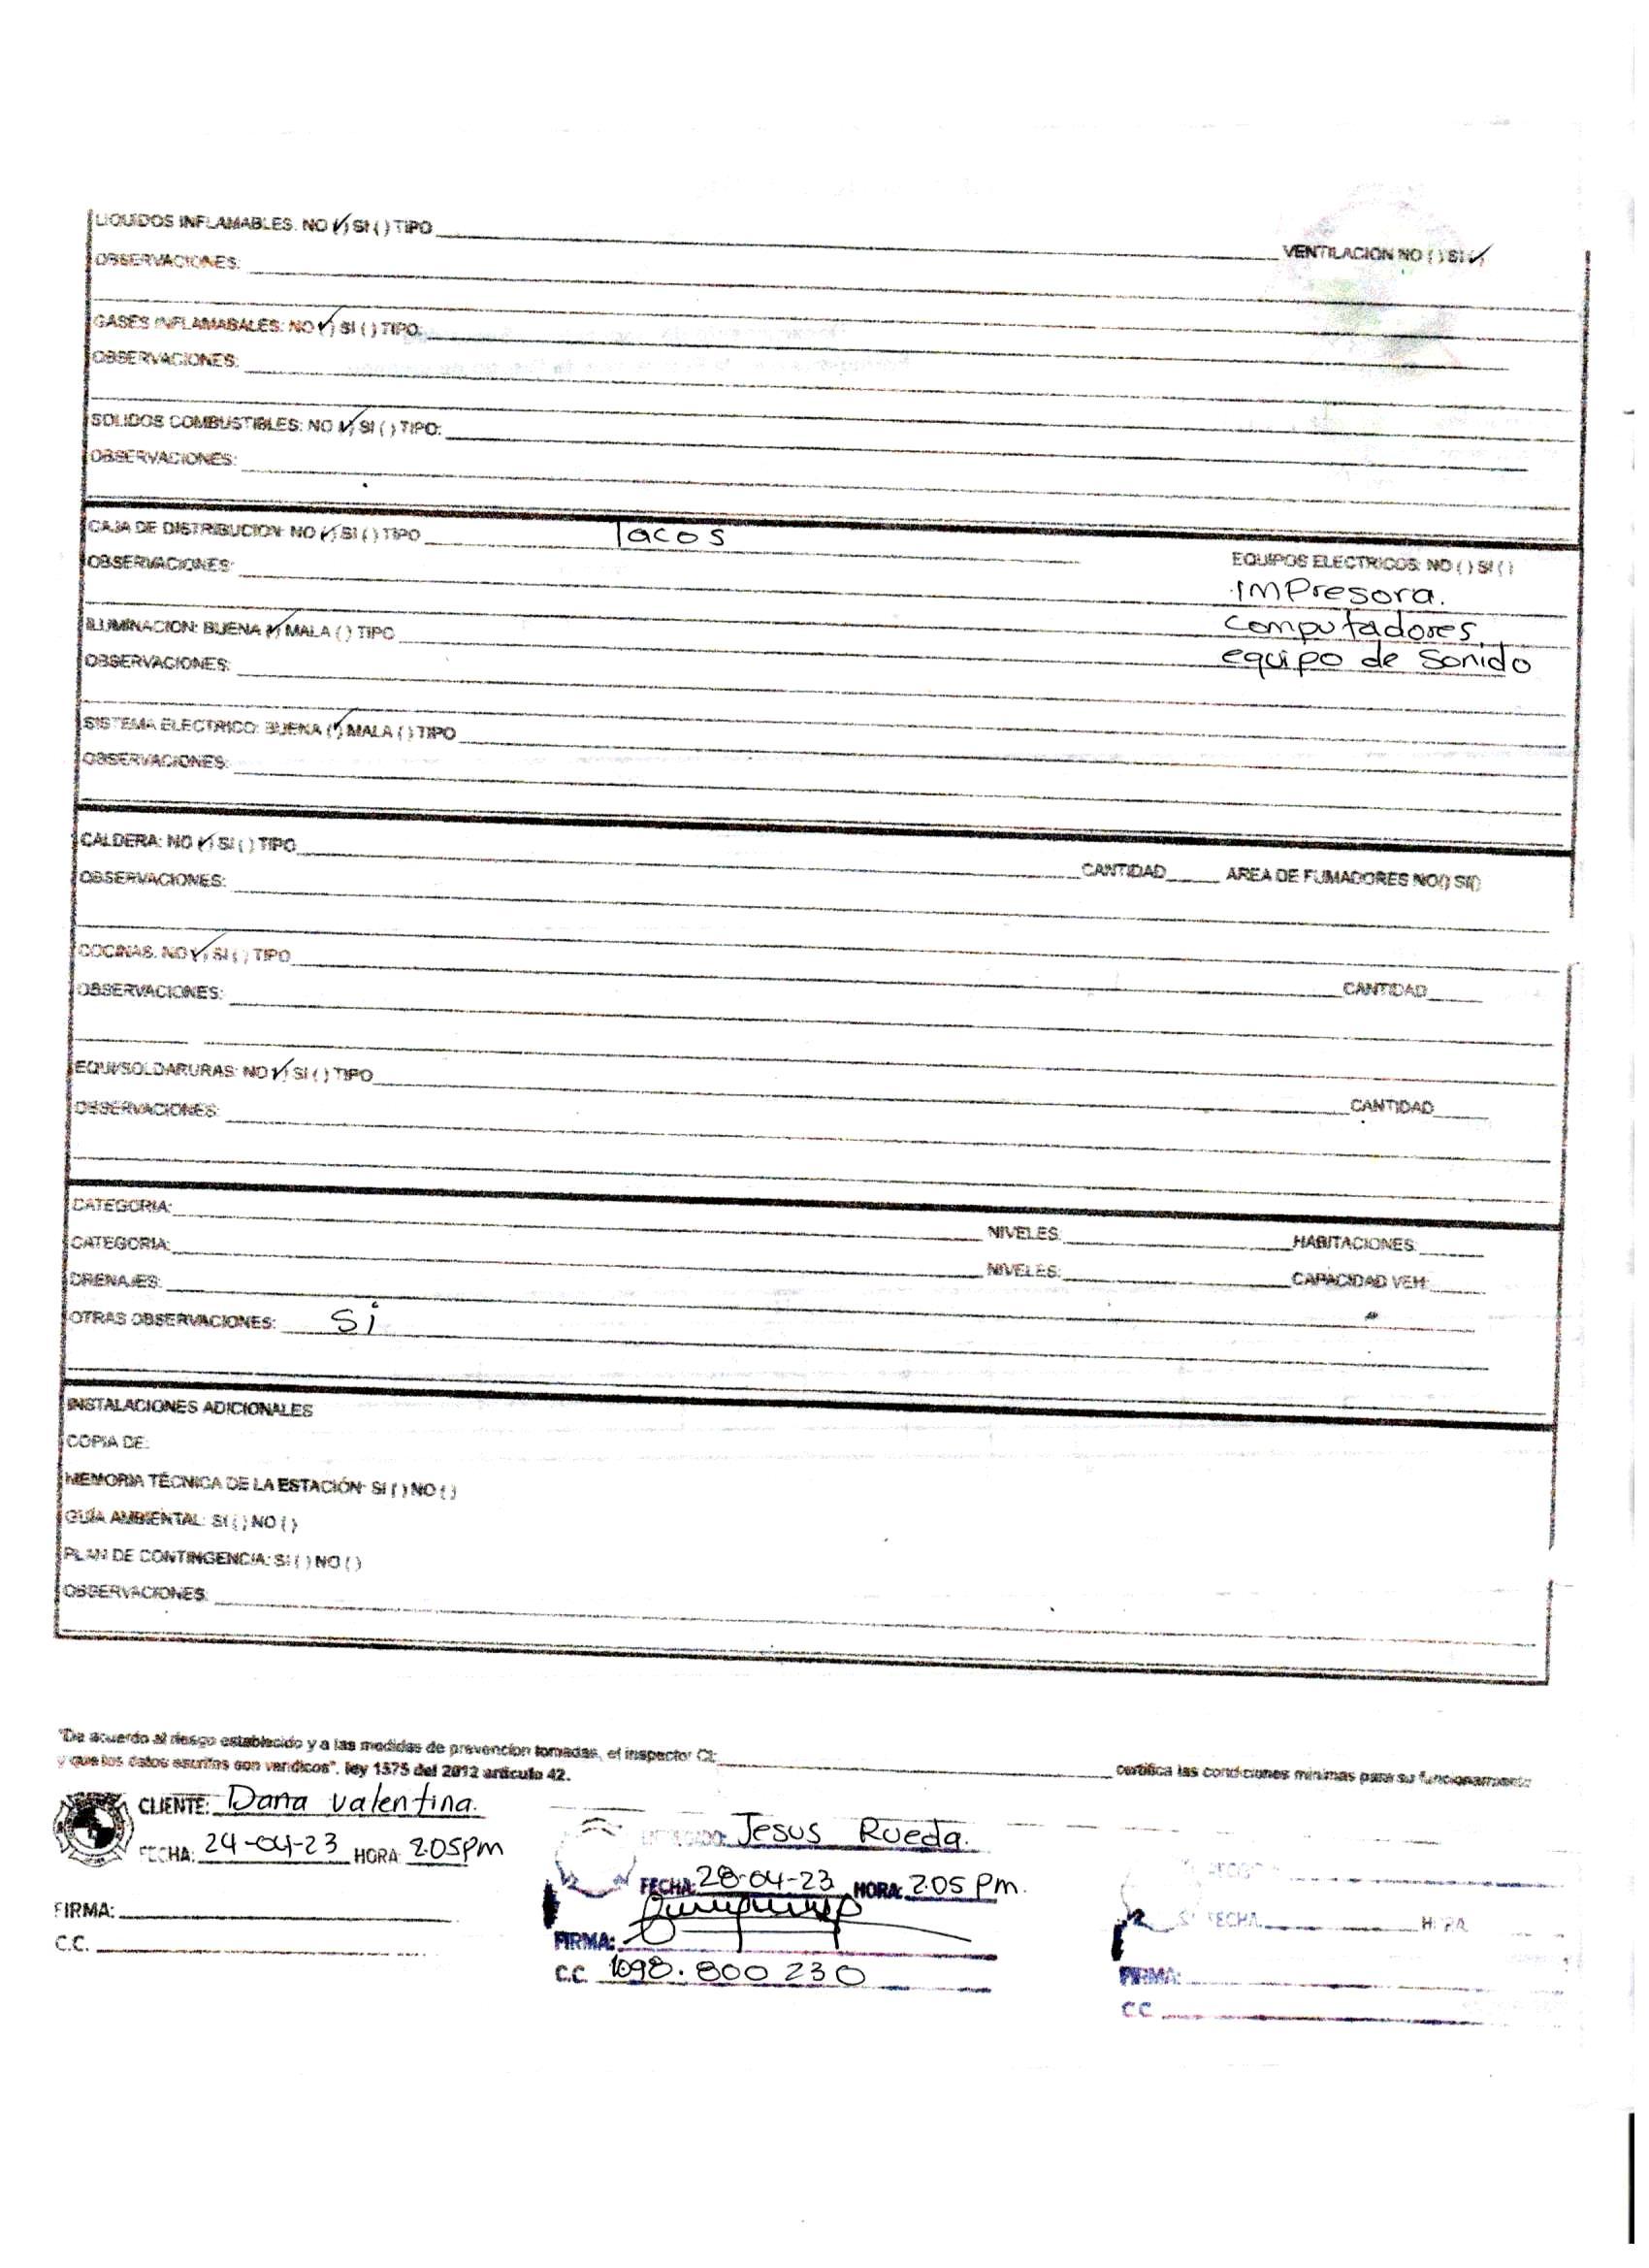 LIQUIDOS INFLAMABLES: NO (✓) SI ( ) TIPO ____ VENTILACION NO ( ) SI (✓)
OBSERVACIONES:
GASES INFLAMABALES: NO (✓) SI ( ) TIPO:
OBSERVACIONES:
SOLIDOS COMBUSTIBLES: NO (✓) SI ( ) TIPO:
OBSERVACIONES:
CAJA DE DISTRIBUCION: NO (✓) SI ( ) TIPO Tacos
EQUIPOS ELECTRICOS: NO ( ) SI ( )
OBSERVACIONES:
IMPresora.
computadores.
equipo de sonido
ILUMINACION: BUENA (✓) MALA ( ) TIPO
OBSERVACIONES:
SISTEMA ELECTRICO: BUENA (✓) MALA ( ) TIPO
OBSERVACIONES:
CALDERA: NO (✓) SI ( ) TIPO ____ CANTIDAD ____ AREA DE FUMADORES NO() SI()
OBSERVACIONES:
COCINAS: NO (✓) SI ( ) TIPO ____ CANTIDAD
OBSERVACIONES:
EQUI/SOLDARURAS: NO (✓) SI ( ) TIPO ____ CANTIDAD
OBSERVACIONES:
CATEGORIA: ____ NIVELES: ____ HABITACIONES:
CATEGORIA: ____ NIVELES: ____ CAPACIDAD VEH:
DRENAJES:
OTRAS OBSERVACIONES: Si
INSTALACIONES ADICIONALES
COPIA DE:
MEMORIA TÉCNICA DE LA ESTACIÓN: SI ( ) NO ( )
GUÍA AMBIENTAL: SI ( ) NO ( )
PLAN DE CONTINGENCIA: SI ( ) NO ( )
OBSERVACIONES:
"De acuerdo al riesgo establecido y a las medidas de prevencion tomadas, el inspector CI: ____ certifica las condiciones minimas para su funcionamiento
y que los datos escritos son veridicos". ley 1575 del 2012 articulo 42.
CLIENTE: Dana valentina.
FECHA: 24-04-23 HORA: 2:05pm
FIRMA:
C.C.
Jesus Rueda.
FECHA: 28-04-23 HORA: 2:05 Pm.
FIRMA:
C.C. 1098.800 230
FECHA: ____ HORA
FIRMA:
C.C.